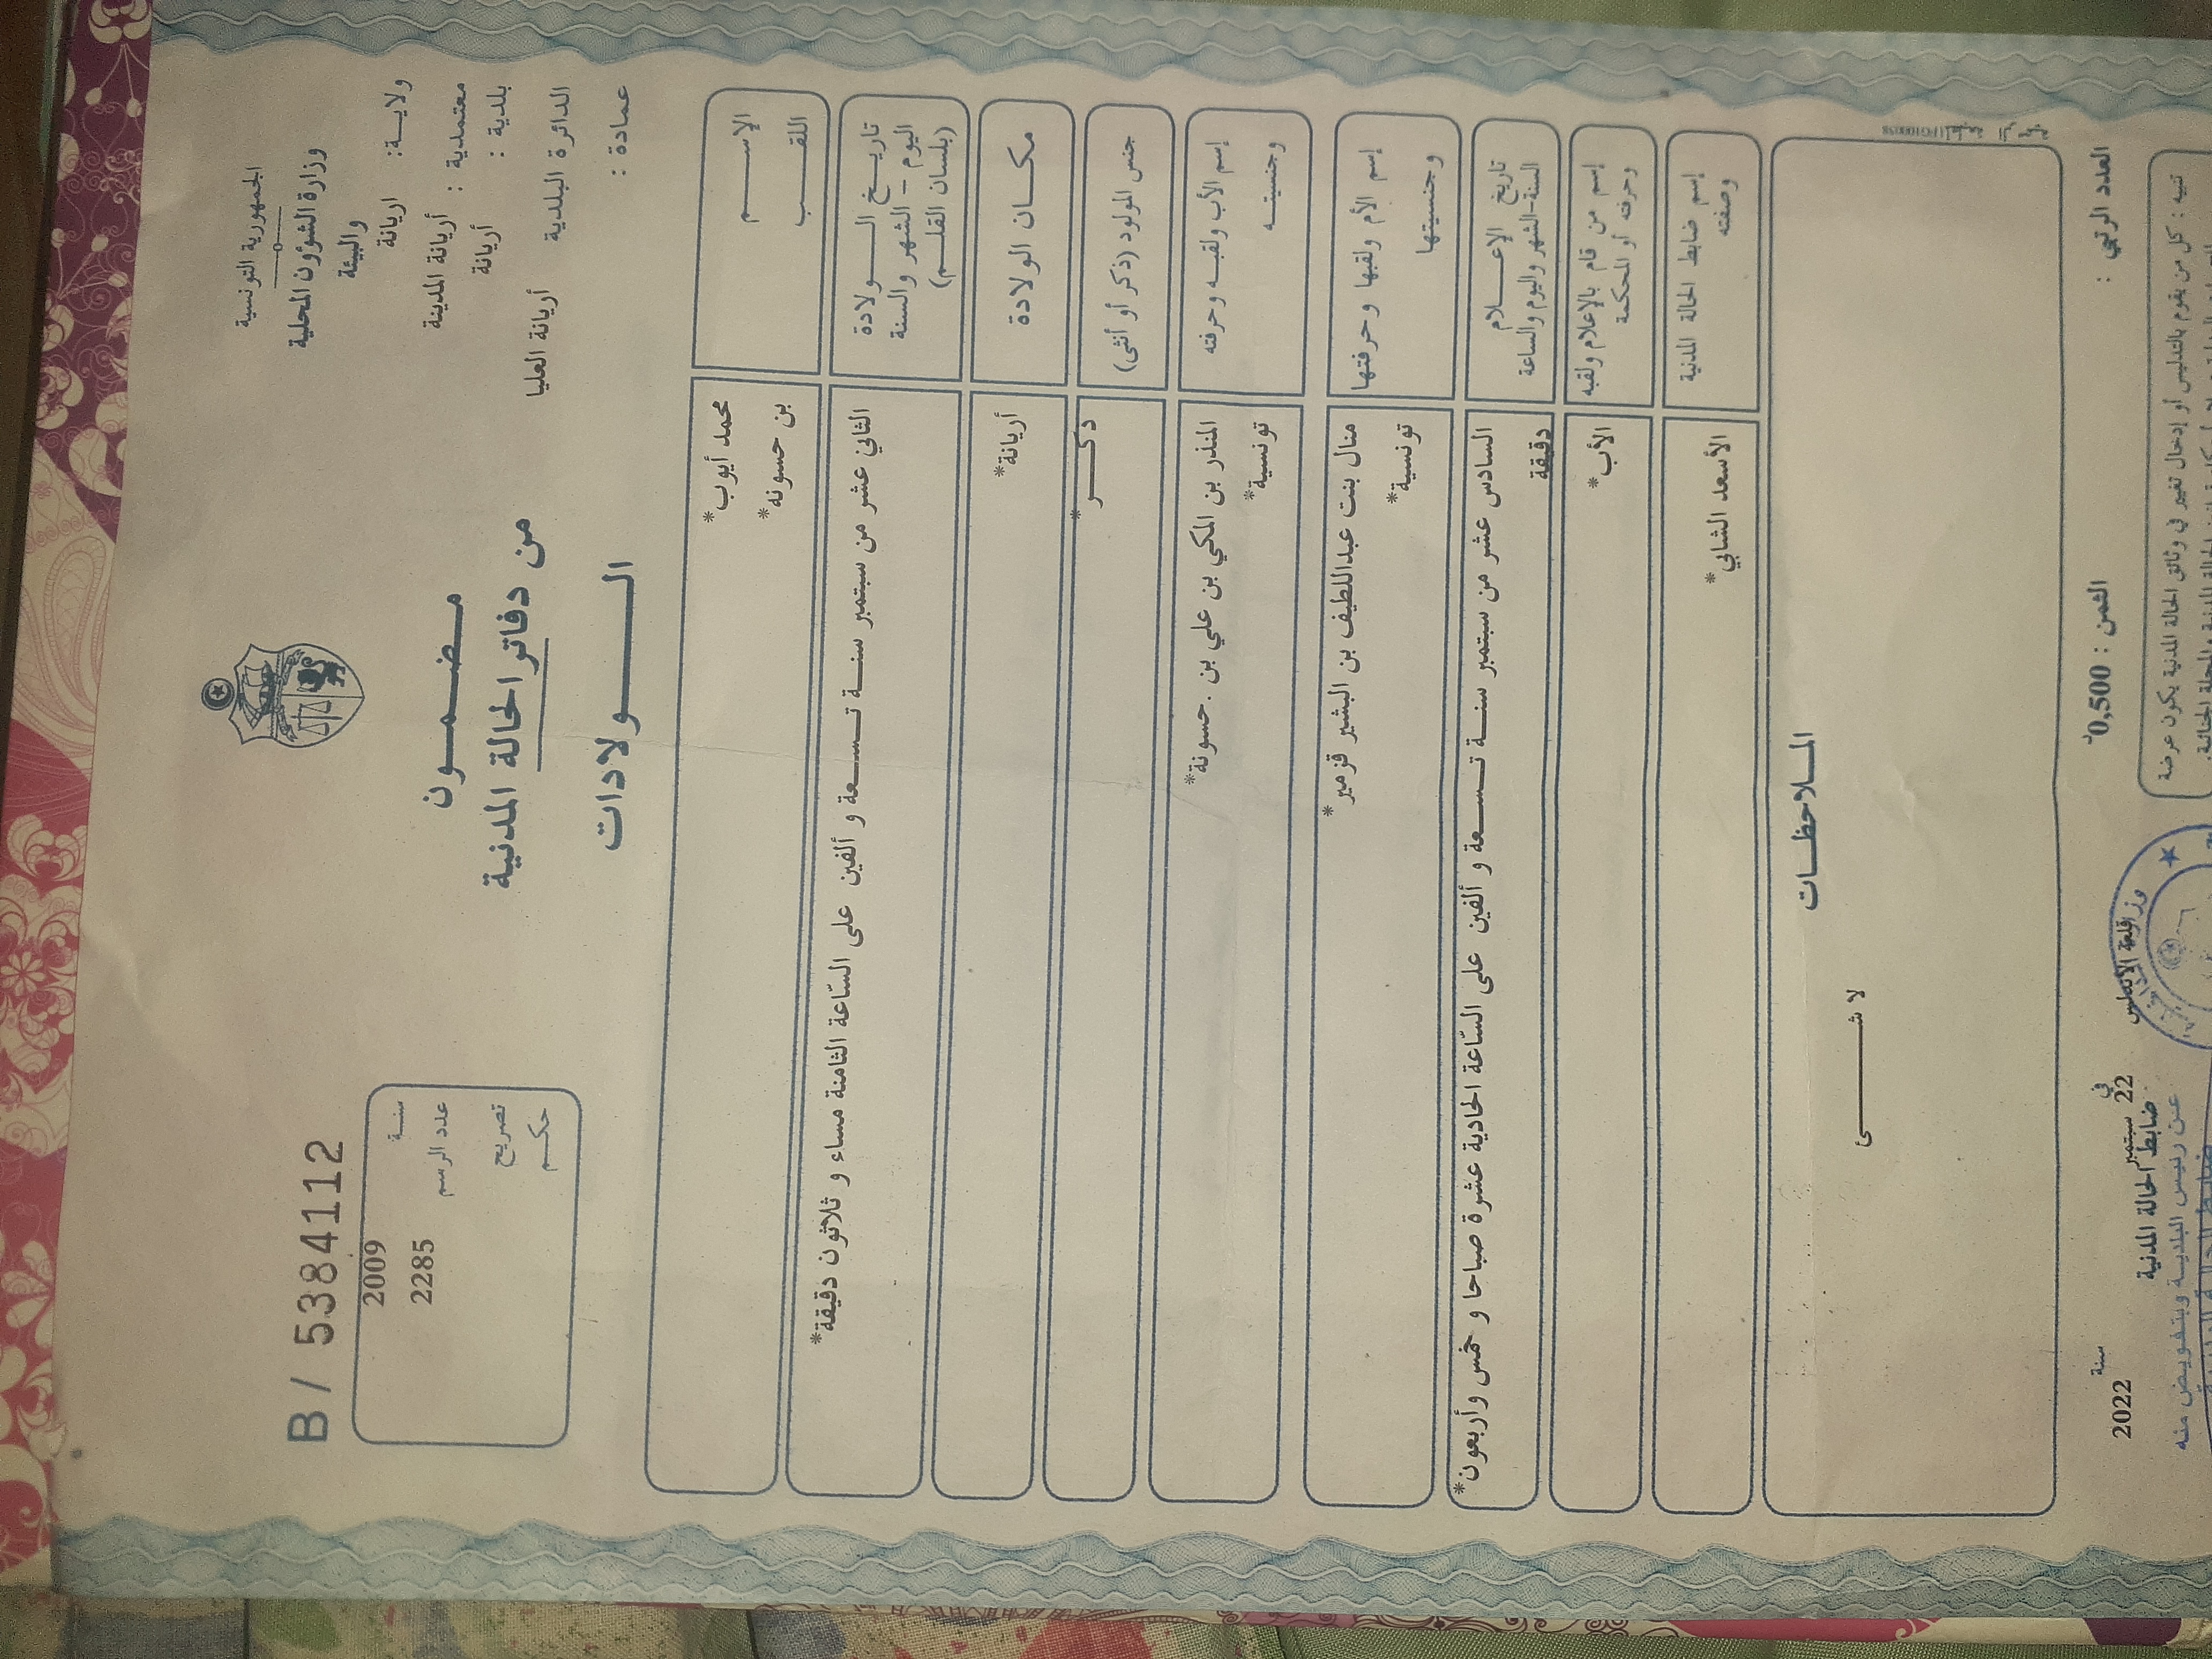 الجمهورية التونسية
وزارة الشؤون المحلية
والبيئة
ولاية: اريانة
معتمدية : أريانة المدينة
بلدية : أريانة
الدائرة البلدية أريانة العليا
عمادة :
مضمون
من دفاتر الحالة المدنية
الولادات
B / 5384112
سنة 2009
عدد الرسم 2285
تصريح
حكم
الإسم محمد أيوب*
اللقب بن حسونه*
تاريخ الولادة الثاني عشر من سبتمبر سنة تسعة و ألفين على السّاعة الثامنة مساء و ثلاثون دقيقة*
اليوم – الشهر والسنة
(بلسان القلم)
مكان الولادة أريانة*
جنس المولود (ذكر أو أنثى) ذكر*
إسم الأب ولقبه وحرفته المنذر بن المكي بن علي بن .حسونة*
وجنسيته تونسية*
إسم الأم ولقبها وحرفتها منال بنت عبداللطيف بن البشير قزمير*
وجنسيتها تونسية*
تاريخ الإعلام السادس عشر من سبتمبر سنة تسعة و ألفين على السّاعة الحادية عشرة صباحا و خمس وأربعون*
السنة-الشهر واليوم والساعة دقيقة
إسم من قام بالإعلام ولقبه الأب*
وحرفته أو المحكمة
إسم ضابط الحالة المدنية الأسعد الشابي*
وصفته
الملاحظات
لا شئ
العدد الرتبي :
الثمن : 0,500د
قلعة الأندلس في 22 سبتمبر سنة 2022
ضابط الحالة المدنية
عن رئيس البلدية وبتفويض منه
تنبيه : كل من يقوم بالتدليس أو إدخال تغيير في وثائق الحالة المدنية يكون عرضة